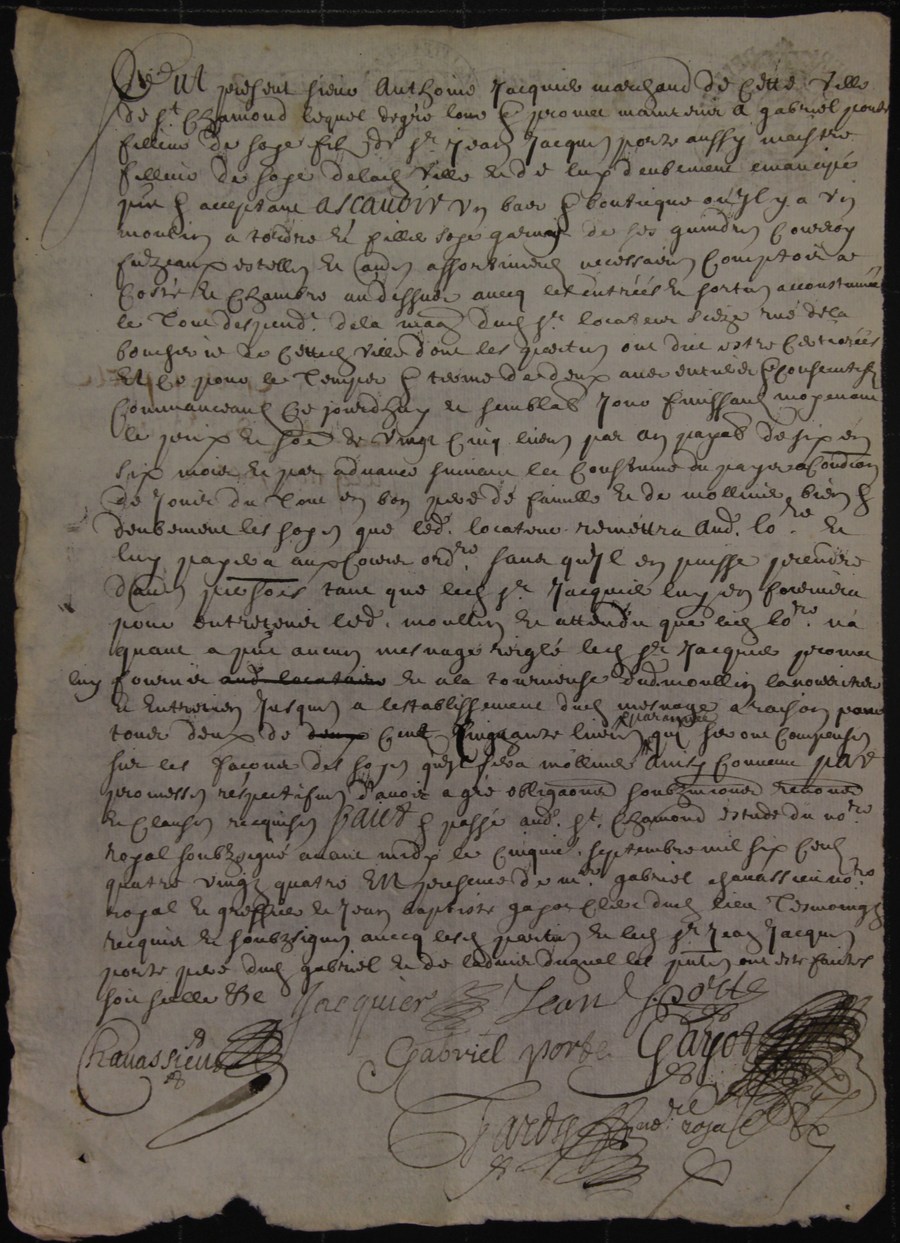 Fut present sieur Anthoine Jacquier marchand de cette ville
de St Chamond lequel de gré loue & promet maintenir a gabriel porte
filleur de soye filz de sr Jean Jacques porte aussy maistre
filleur de soye de lad ville et de luy deubement emancipé
& acceptant ascavoir un bas & boutique ou il y a un
moulin a tordre et filler soye garny de ses guindres courroy
fuzeaux estelles et assortiment necessaires comptoir a
costé et chambre au dessus avecq les entrées et sorties accoustumées
le tout despendt de la maon dud sr locateur size rue de la
boucherie de cette ville dont les parties ont dit estre certiorées
Et ce pour le temps & terme de deux années entieres & consecutifves
Commanceant ce jourdhuy et semblable jour finissant moyenant
le prix et so e de vingt cinq livres par an payable de six en
six mois et par advance suivant la coustume du paÿs a condon
de jouir du tout en bon pere de famille et de molliner bien &
deubement les soyes que led. locateur remettra aud. lo.re et
luy payera aux cours ordre. sans qu'il en puisse prendre
d'autres tant que led sr Jacquier luy en fournira
pour entretenir led. moullin et attendu que led lo.re na
quant a pnt aucun mesnage reiglé led sr Jacquier promet
luy fournir aud locataire et a la tourneuse dud moullin la nourriture
et entretien jusques a lestablissement dud mesnage a raison pour
tous deux de deux cent quarante Cinquante livres qui seront compensés
sur les façons des soyes quil fera molliner Ainsy convenu par
promesses respectifves d'avoir a gré obligaons soubzmions renons
et clauses requises faict & passé aud. St. Chamond estude du nore
royal soubzsigné avant midy le cinquie. septembre mil six cent
quatre vingt quatre En presence de me. gabriel chanassieu nore
royal et greffier et Jean baptiste gayot clerc dud lieu tesmoingz
requis et soubzsignes avecq lesd parties et led sr Jean Jacques
porte pere dud gabriel et de ladvis duquel les pntes ont esté faictes
Jacquier Jean J. porte
Chanassieu Gabriel porte Gayot
Tardy nore royal